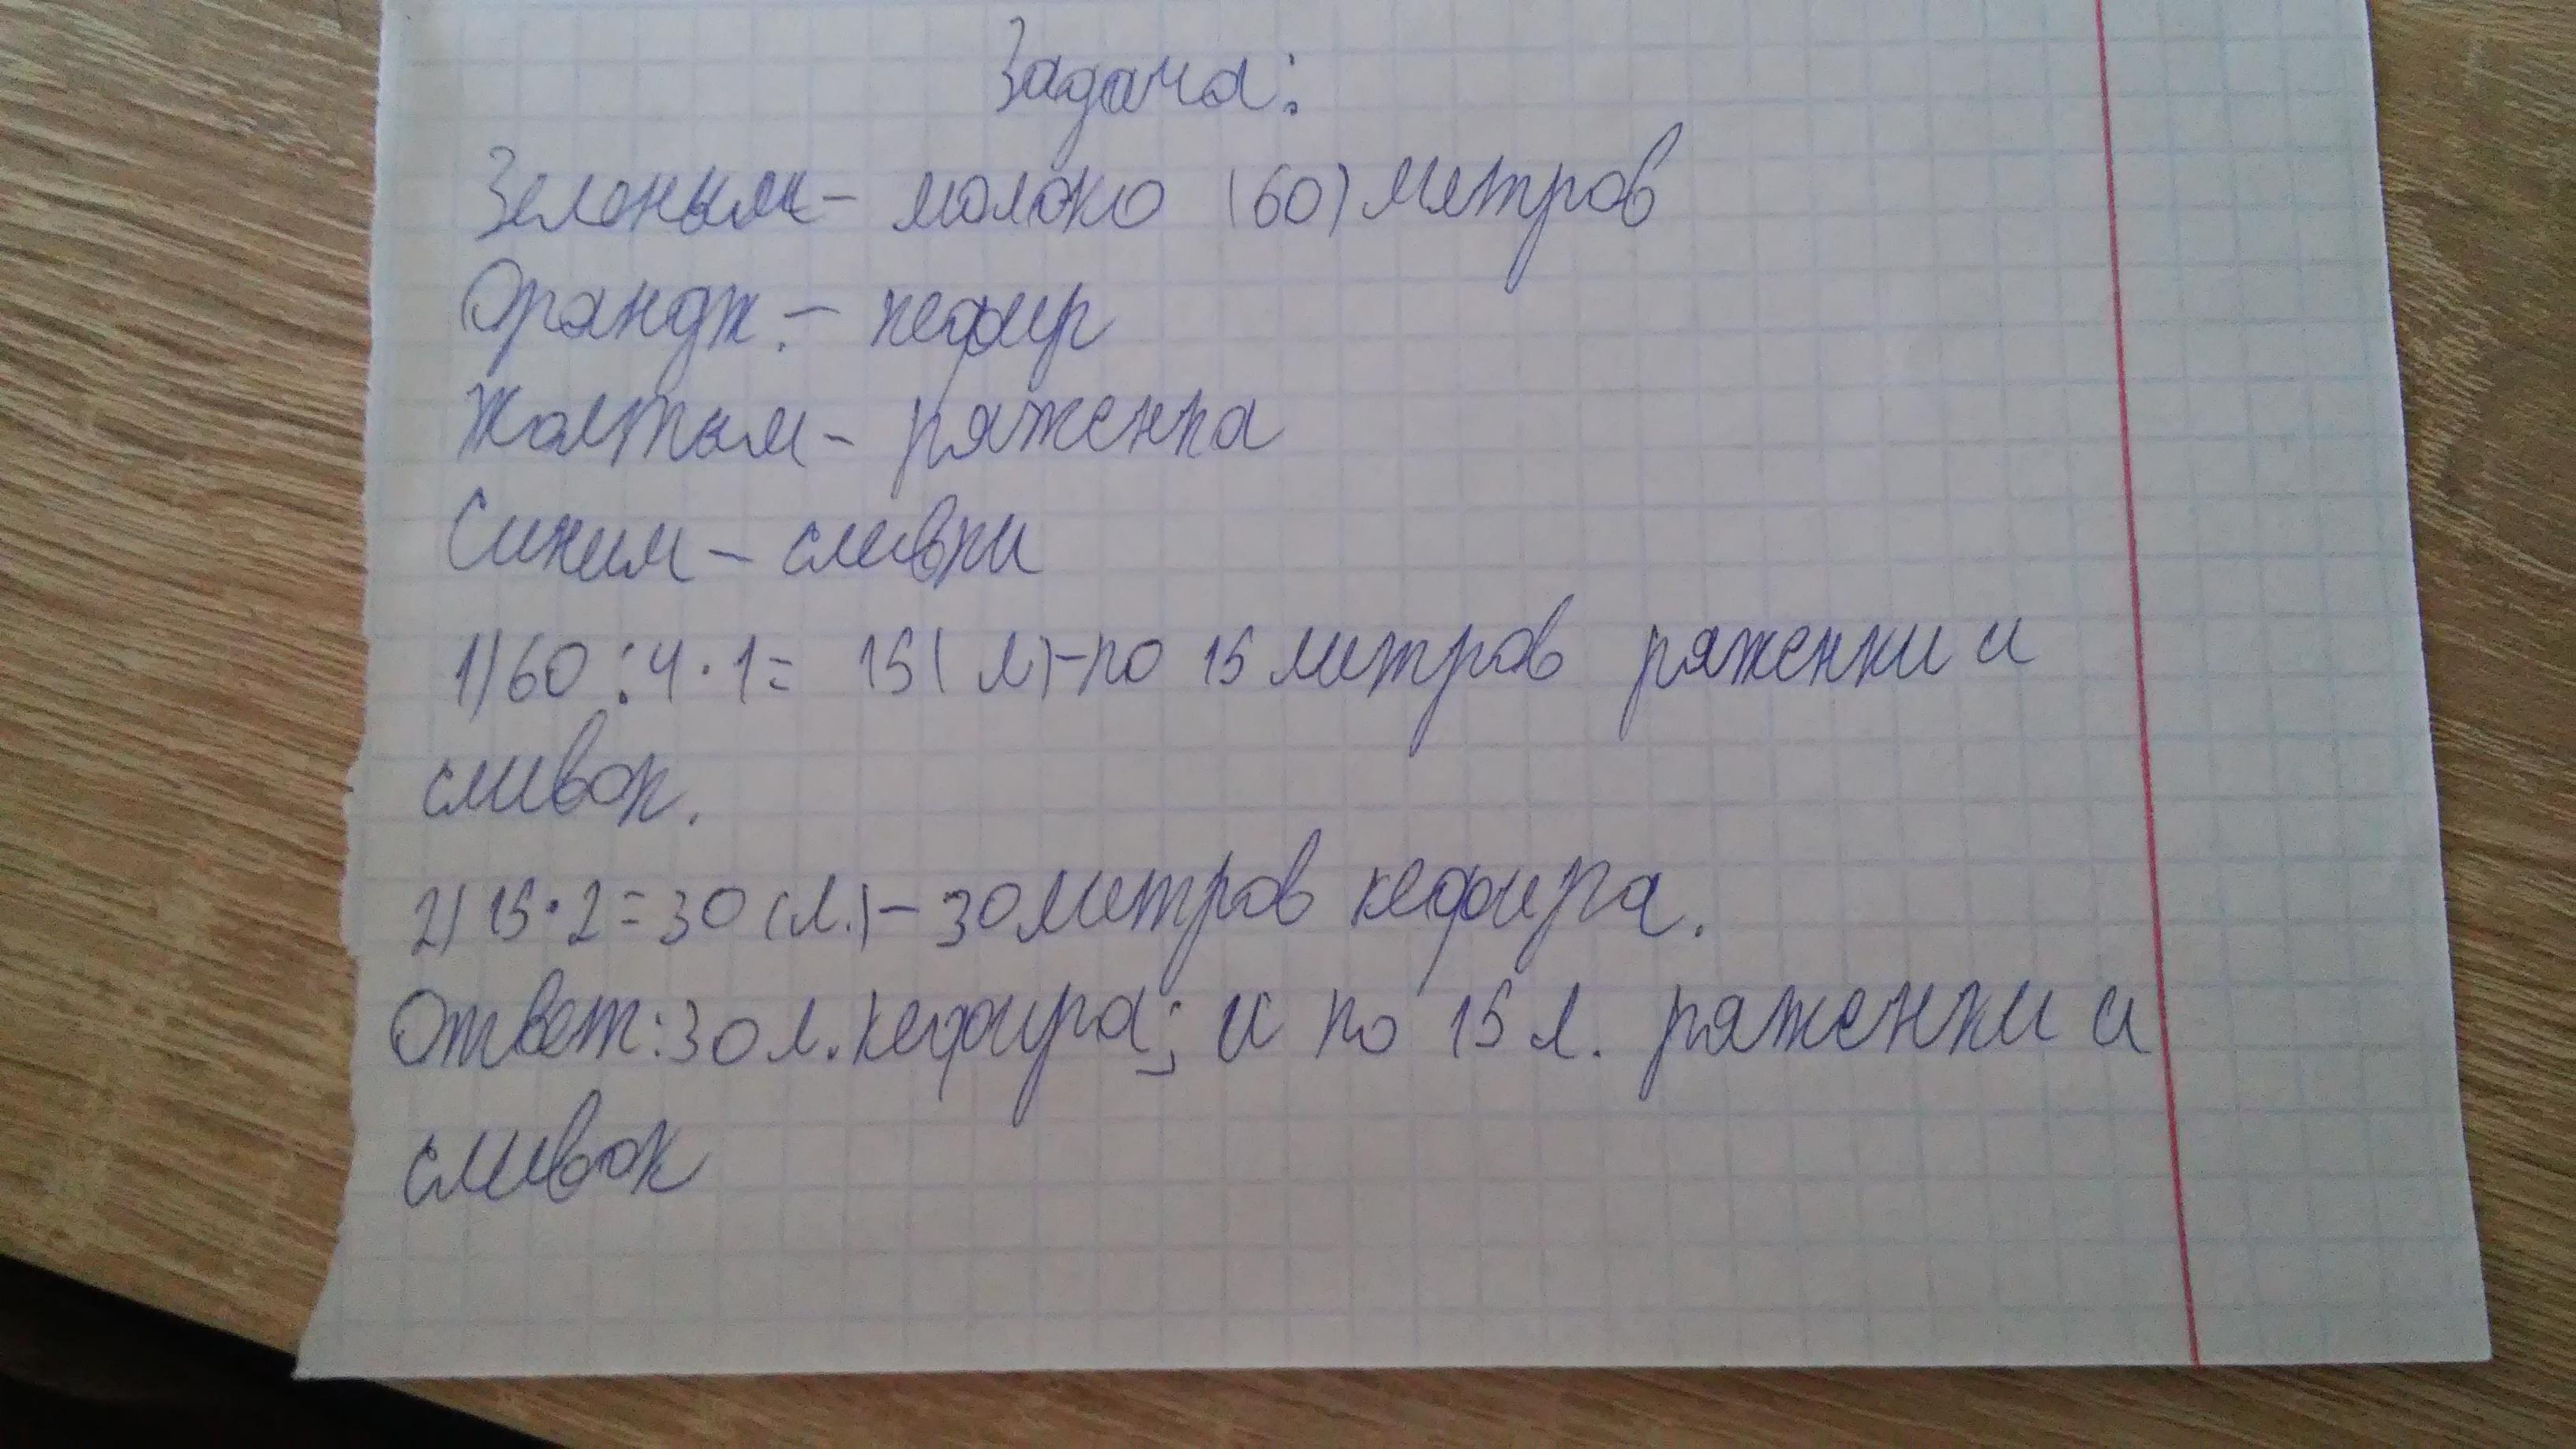 Задача:
Зеленым - молоко (60) литров
Орандж. - кефир
Жолтым - ряженка
Синим - сливки
1) 60 : 4 · 1 = 15 (л) - по 15 литров ряженки и
сливок.
2) 15 · 2 = 30 (л.) - 30 литров кефира.
Ответ: 30 л. кефира; и по 15 л. ряженки и
сливок